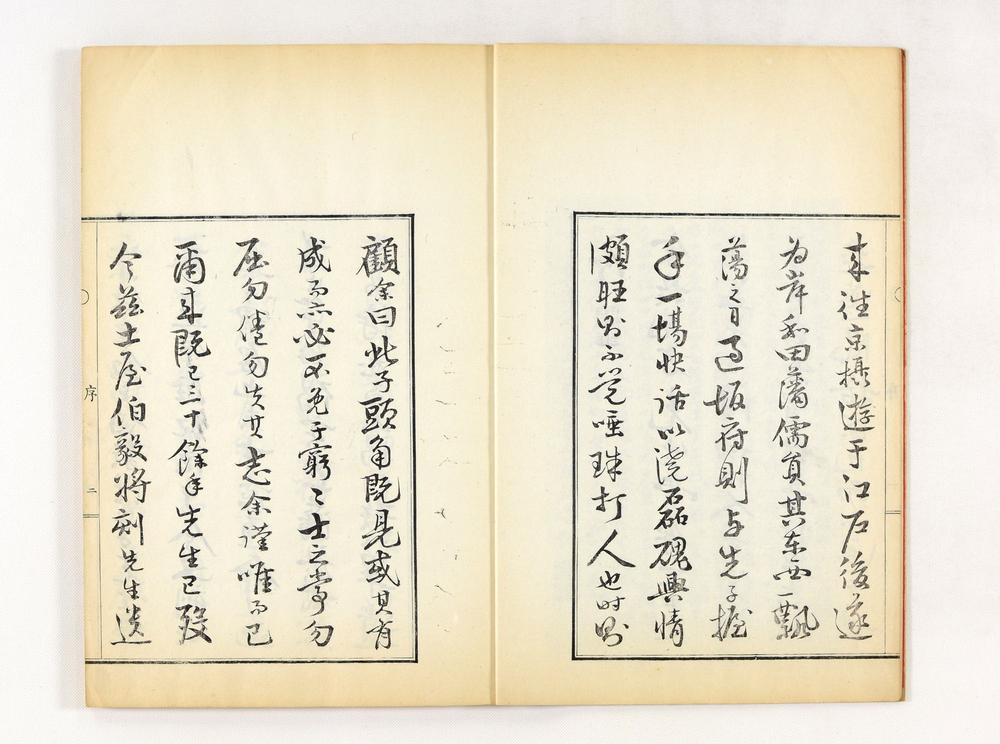 来往京攝遊于江戸後遂
為岸和田藩儒員其东西飄
蕩之日過坂府則与先子握
手一場快話以澆磊磈興情
頗旺則不覚唾珠打人也时则
顧余曰此子頭角既見或其有
成而亦必不免于窮〻士之常勿
屈勿倦勿失其志余謹唯而已
爾来既已三十餘年先生已歿
今茲土屋伯毅将刻先生遺
序
二